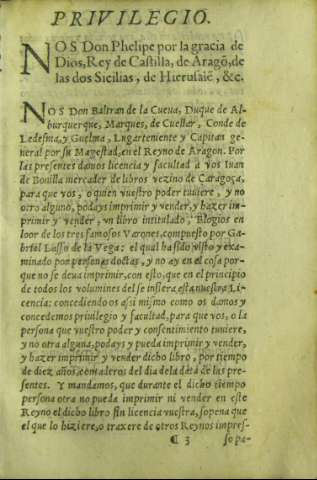 PRIVILEGIO.
NOS Don Phelipe por la gracia de
Dios, Rey de Castilla, de Aragõ, de
las dos Sicilias, de Hierusalẽ, &c.
NOS Don Baltran de la Cueua, Duque de Al-
burquerque, Marques, de Cuellar, Conde de
Ledesma, y Guelma, Lugarteniente y Capitan ge-
neral por su Magestad, en el Reyno de Aragon. Por
las presentes damos licencia y facultad a vos Iuan
de Bonilla mercader de libros vezino de Çaragoça,
para que vos, o quien vuestro poder tuuiere, y no
otro alguno, podays imprimir y vender, y hazer im-
primir y vender, vn libro intitulado, Elogios en
loor de los tres famosos Varones, compuesto por Ga-
briel Lasso de la Vega: el qual ha sido visto y exa-
minado por personas doctas, y no ay en el cosa por-
que no se deua imprimir, con esto, que en el principio
de todos los volumines del se insiera esta nuestra Li-
cencia: concediendoos assi mismo como os damos y
concedemos priuilegio y facultad, para que vos, o la
persona que vuestro poder y consentimiento tuuiere,
y no otra alguna, podays y pueda imprimir y vender,
y hazer imprimir y vender dicho libro, por tiempo
de diez años, contaderos del dia de la data de las pre-
sentes. Y mandamos, que durante el dicho tiempo
persona otra no pueda imprimir ni vender en este
Reyno el dicho libro sin licencia vuestra, sopena que
el que lo hiziere, o traxere de otros Reynos impres-
¶ 3 so pa-